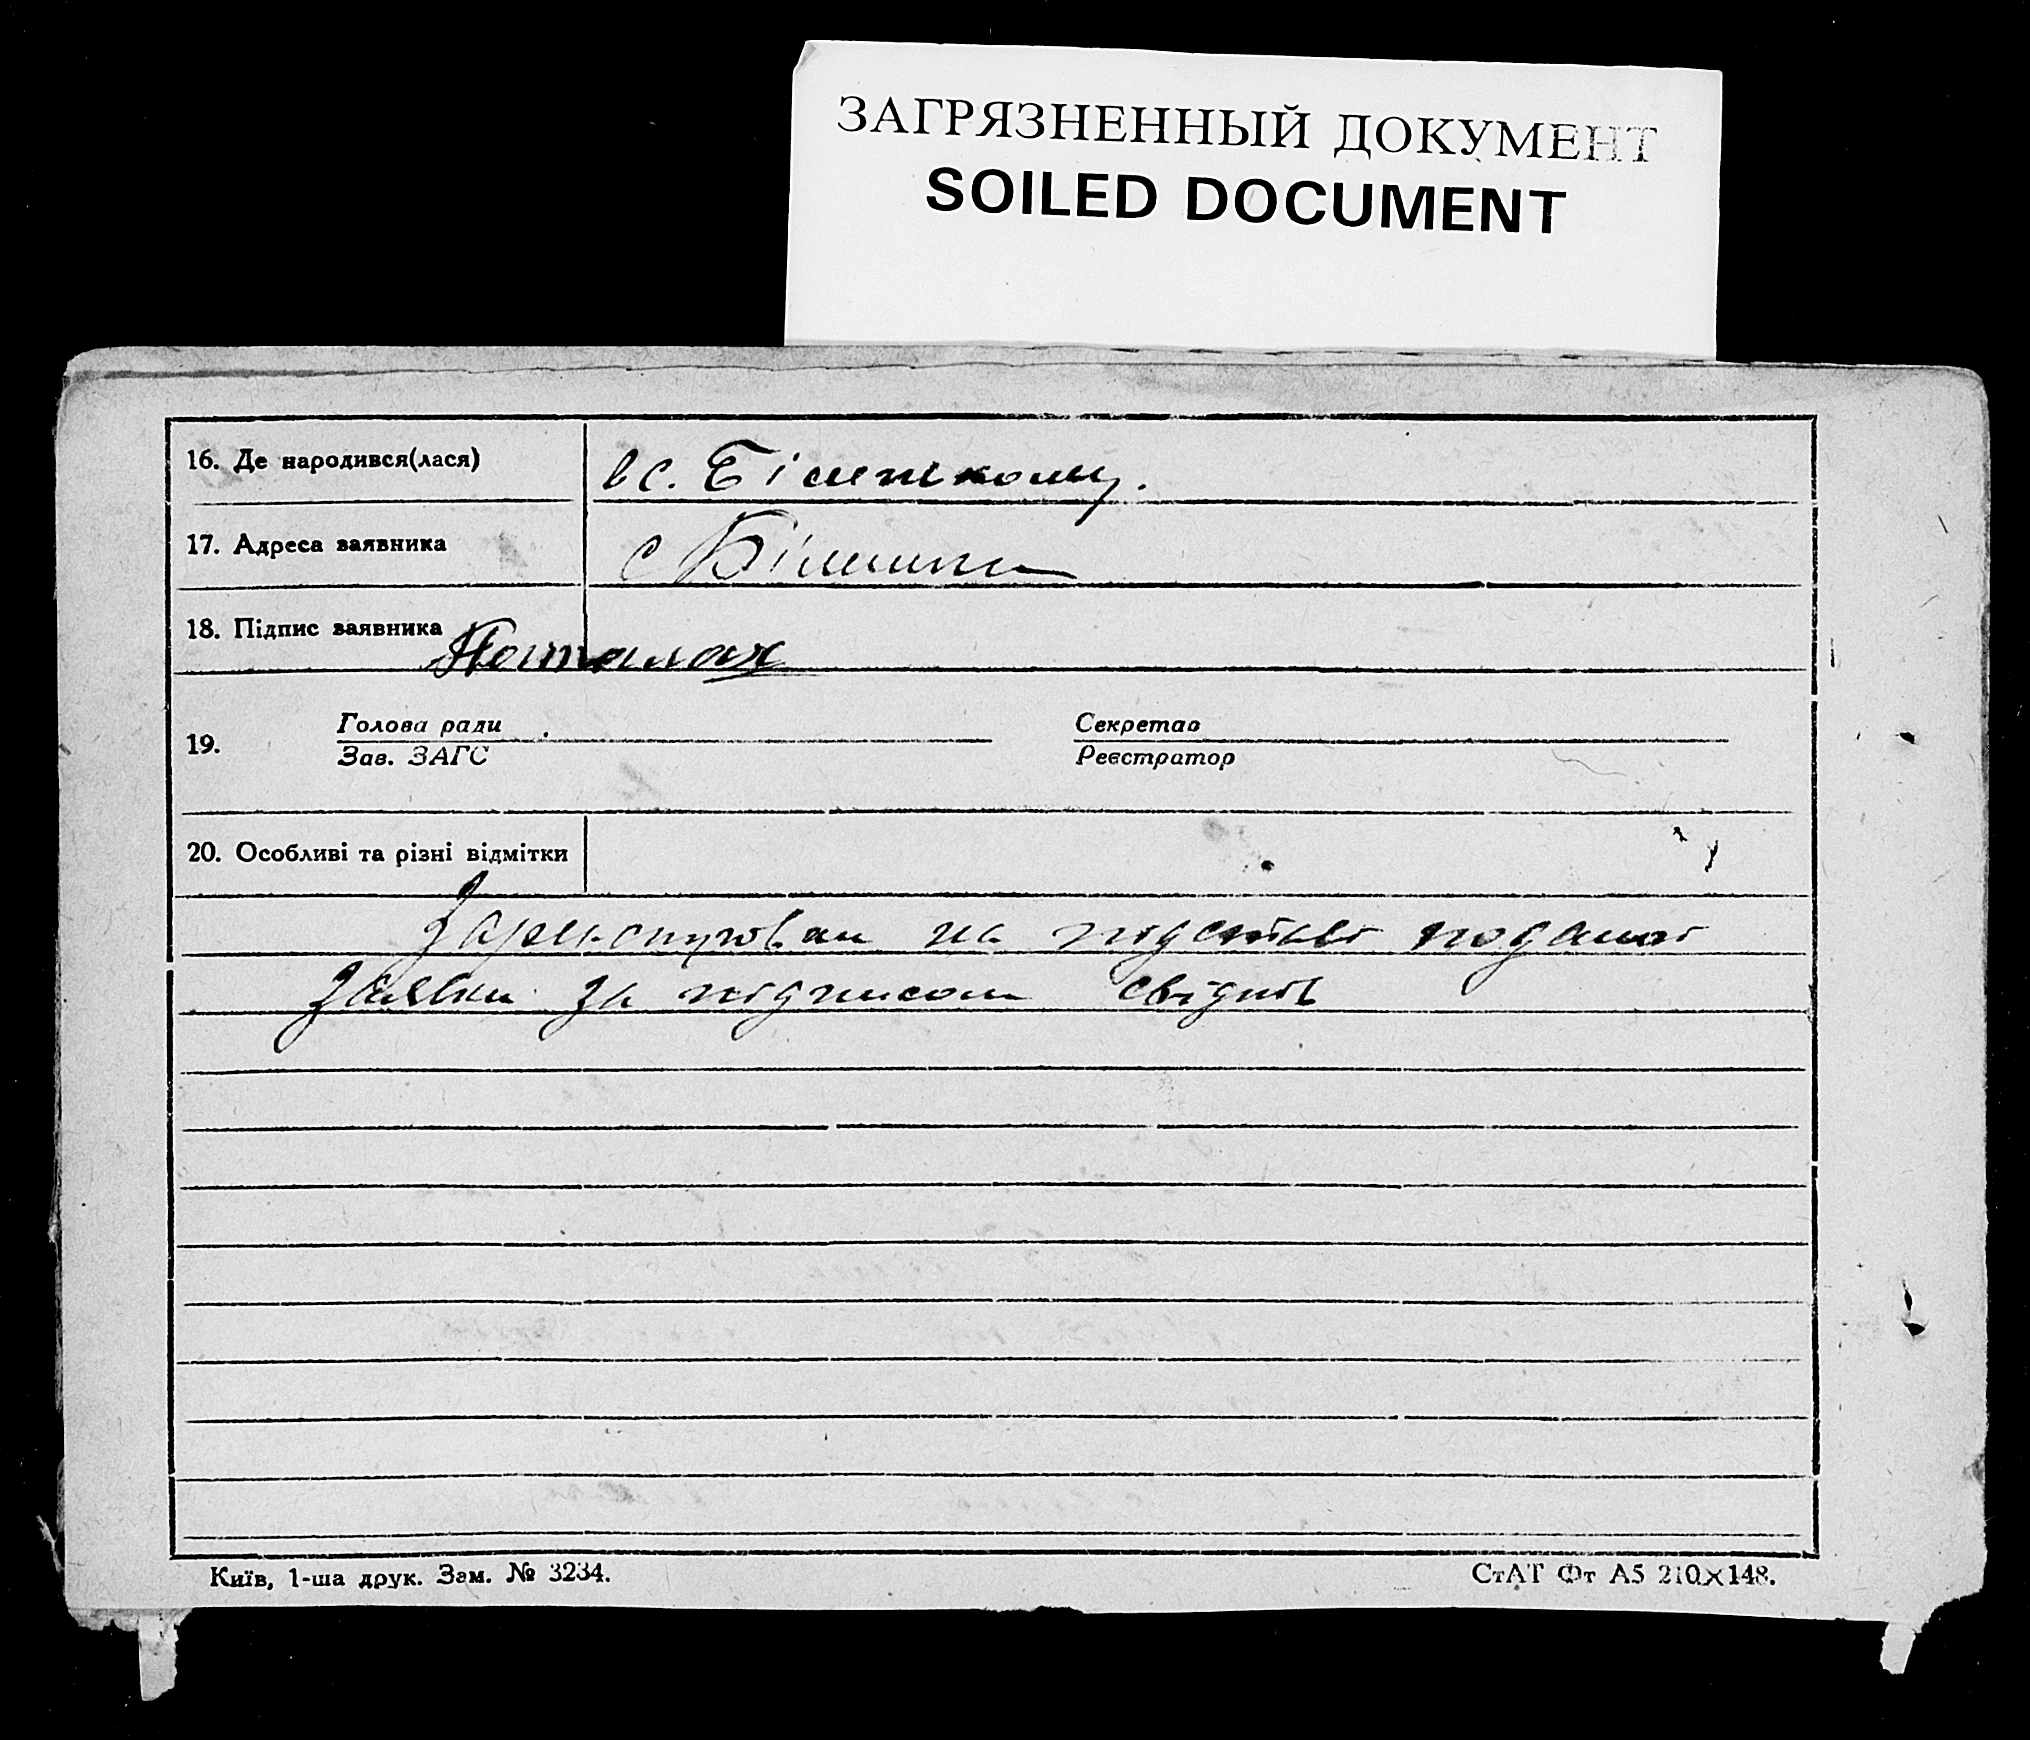 ЗАГРЯЗНЕННЫЙ ДОКУМЕНТ
SOILED DOCUMENT
16. Де народився(лася) в с.
17. Адреса заявника с
18. Підпис заявника
19. Голова ради Секретар
Зав. ЗАГС Реєстратор
20. Особливі та різні відмітки
на підставі поданої
заявки за підписом свідків
Київ, 1-ша друк. Зам. № 3234. СтАТ Фт А5 210×148.